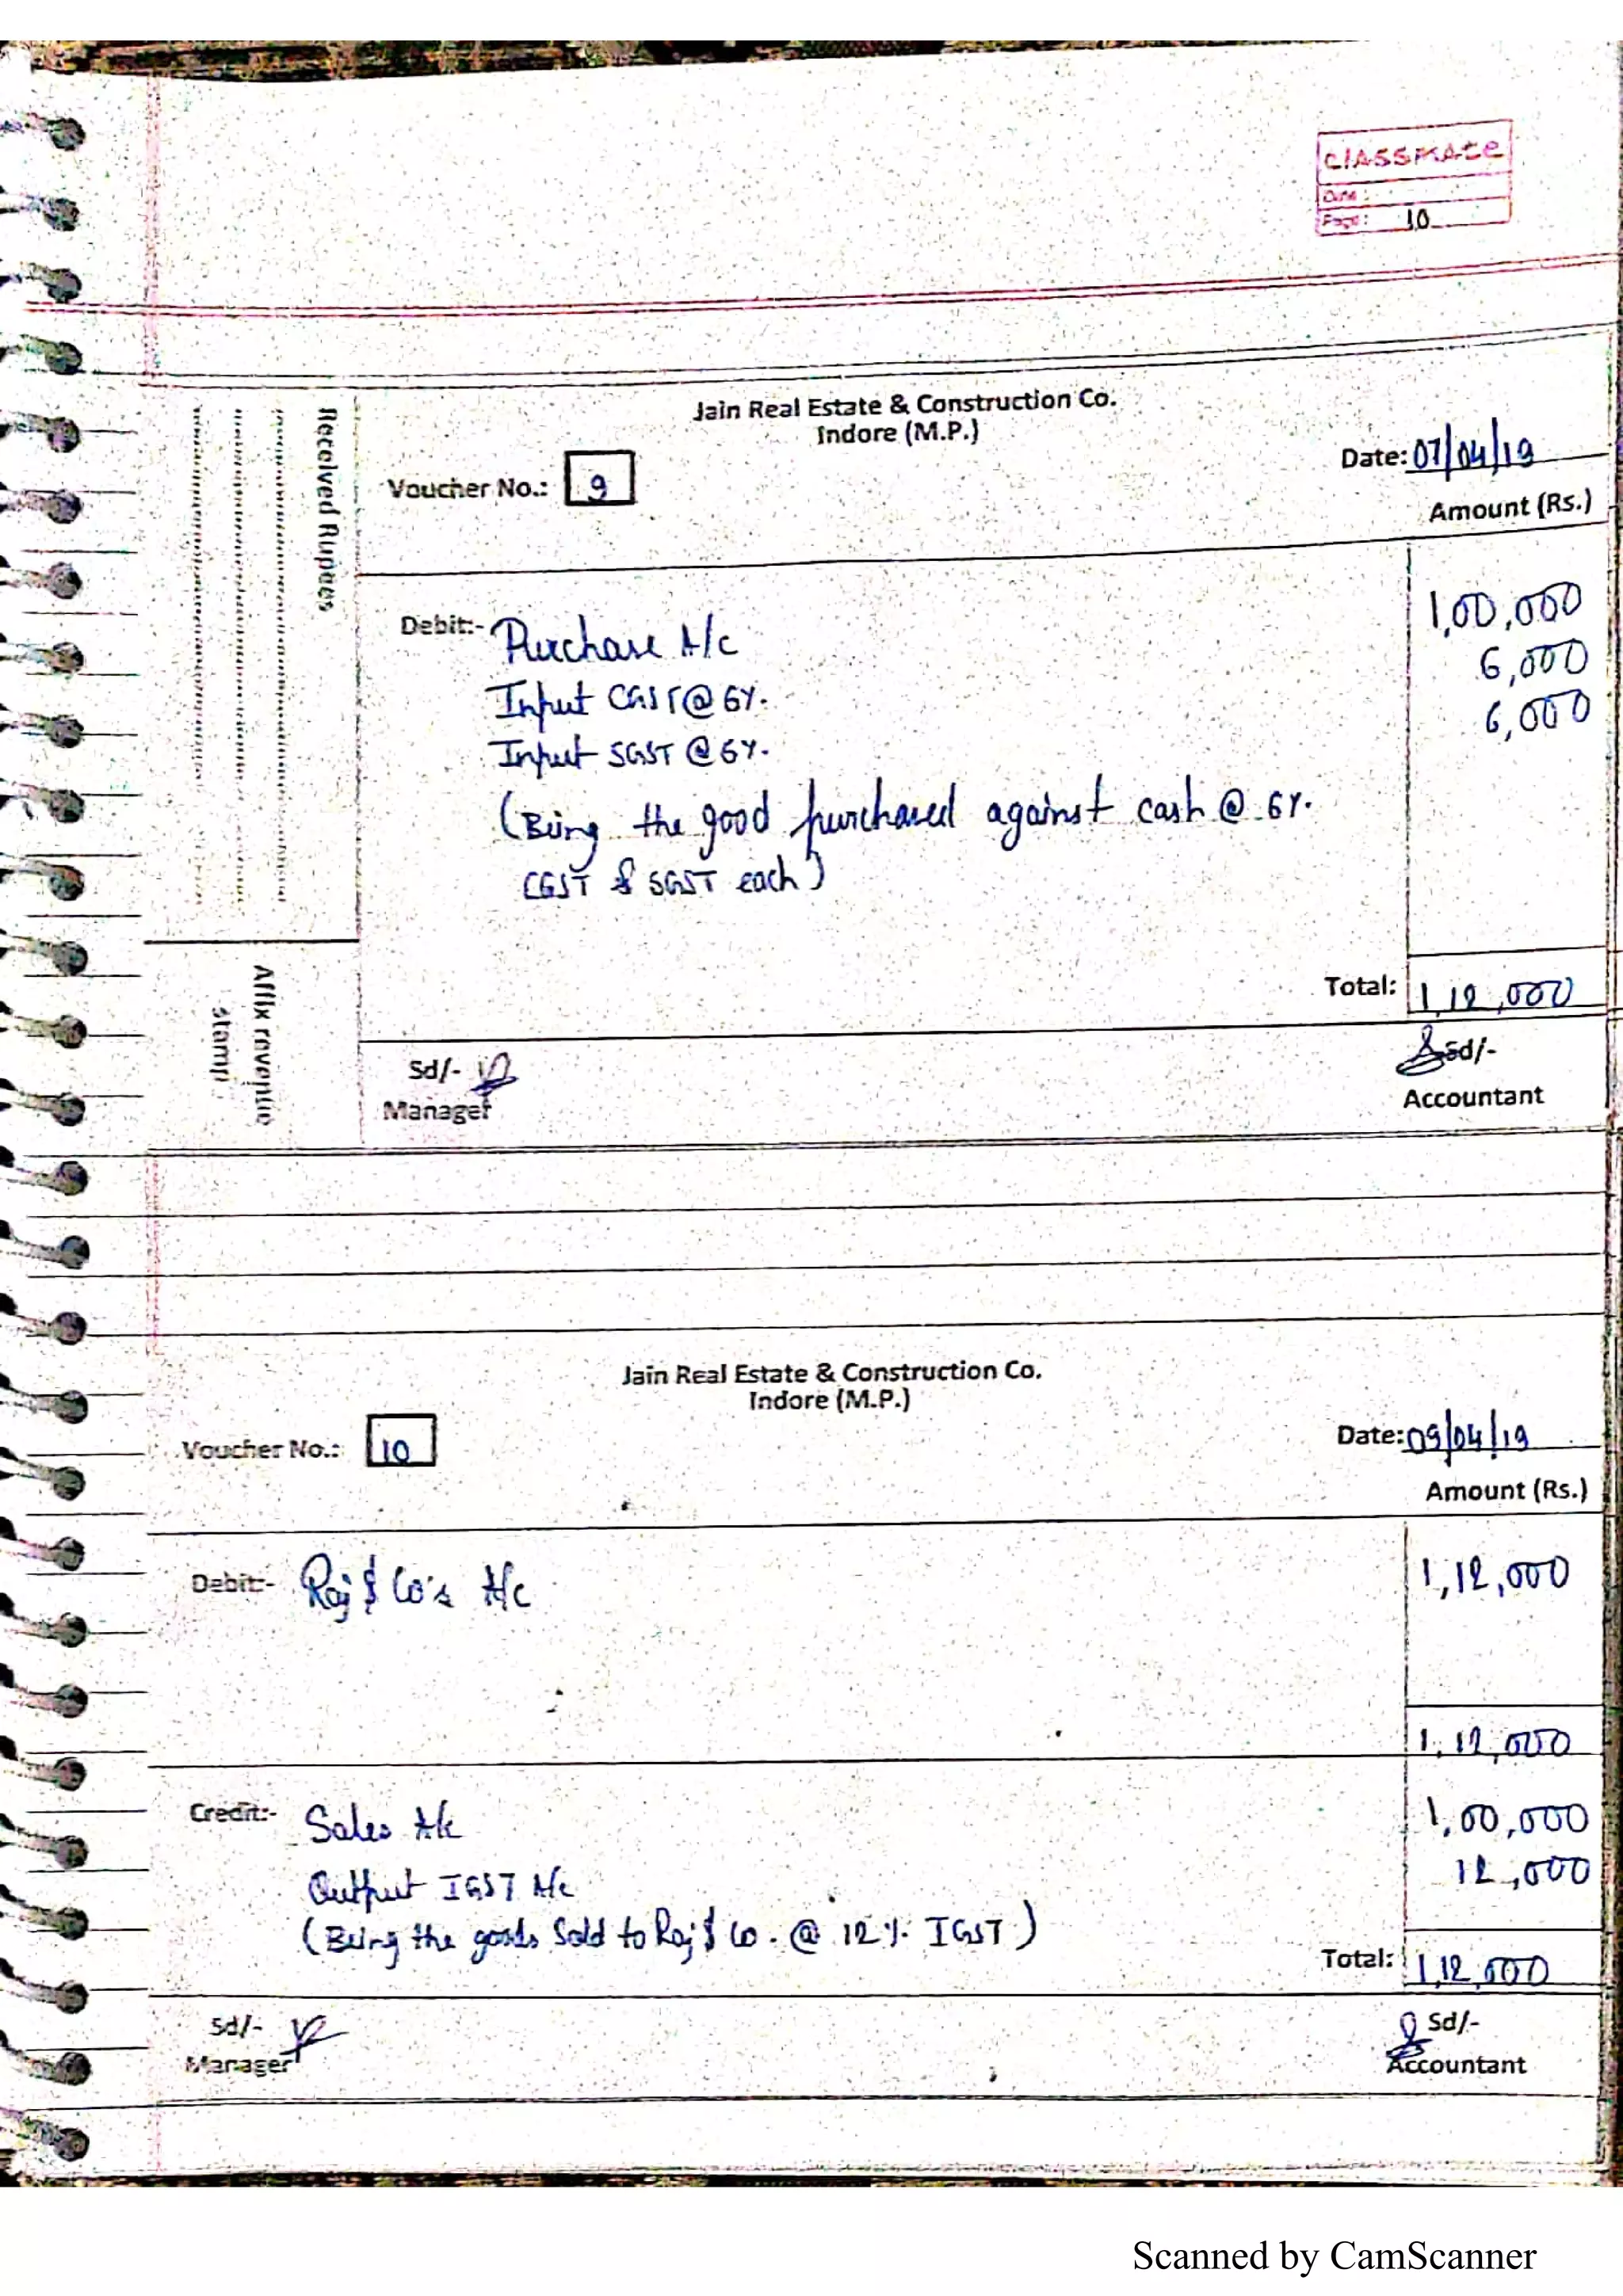 classmate
Date :
Page : 10
Jain Real Estate & Construction Co.
Indore (M.P.)
Voucher No.: 9
Date: 07/04/19
Amount (Rs.)
Received Rupees
Affix revenue
stamp
Debit:- Purchase A/c 1,00,000
Input CGST @ 6% 6,000
Input SGST @ 6% 6,000
(Being the good purchased against cash @ 6%
CGST & SGST each)
Total: 1,12,000
Sd/- Sd/-
Manager Accountant
Jain Real Estate & Construction Co.
Indore (M.P.)
Voucher No.: 10
Date: 09/04/19
Amount (Rs.)
Debit:- Raj & Co's A/c 1,12,000
1,12,000
Credit:- Sales A/c 1,00,000
Output IGST A/c 12,000
(Being the goods Sold to Raj & Co. @ 12% IGST)
Total: 1,12,000
Sd/- Sd/-
Manager Accountant
Scanned by CamScanner